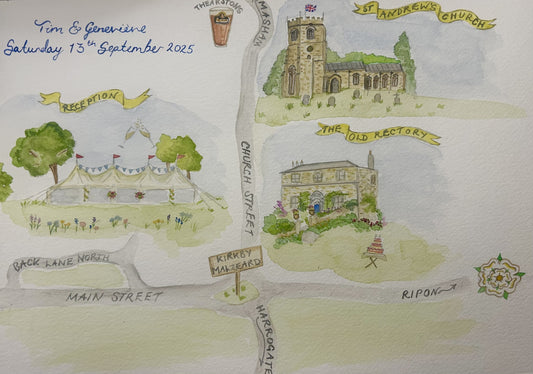 Tim & Genevieve
Saturday 13th September 2025
THEAKSTONS
MASHAM
ST ANDREW'S CHURCH
RECEPTION
THE OLD RECTORY
CHURCH STREET
KIRKBY
MALZEARD
BACK LANE NORTH
MAIN STREET
RIPON
HARROGATE